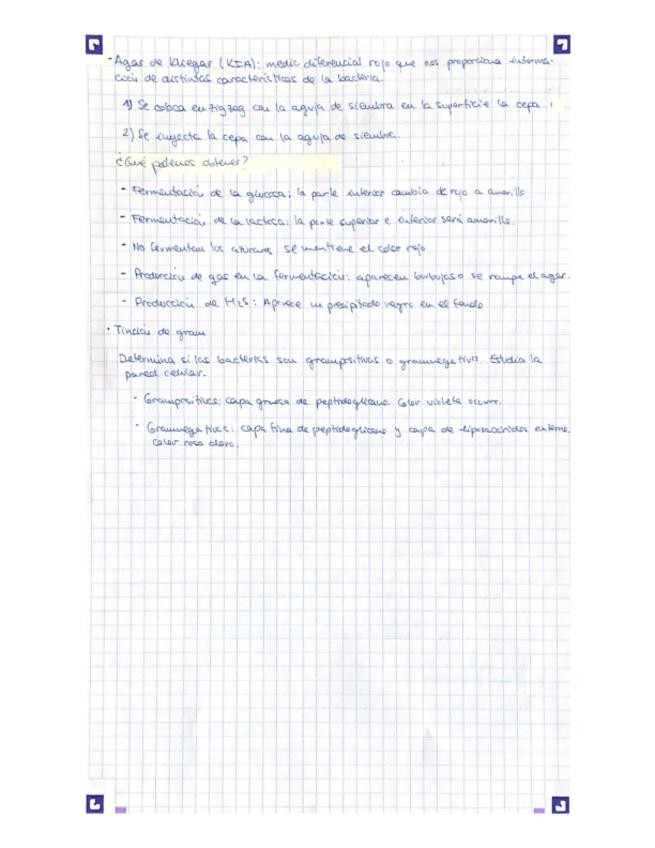 - Agar de Kliegar (KIA): medio diferencial rojo que nos proporciona informa-
ción de distintas características de la bacteria.
1) Se coloca en zigzag con la aguja de siembra en la superficie la cepa.
2) Se inyecta la cepa con la aguja de siembra.
¿Qué podemos obtener?
- Fermentación de la glucosa: la parte inferior cambia de rojo a amarillo
- Fermentación de la lactosa: la parte superior e inferior será amarillo.
- No fermentan los azúcares se mantiene el color rojo
- Producción de gas en la fermentación: aparecen burbujas o se rompe el agar.
- Producción de H2S: Aparece un precipitado negro en el fondo
· Tinción de gram
Determina si las bacterias son grampositivas o gramnegativas. Estudia la
pared celular.
· Grampositivas: capa gruesa de peptidoglicano. Color violeta oscuro.
· Gramnegativas: capa fina de peptidoglicano y capa de liposacáridos externa.
color rosa claro.